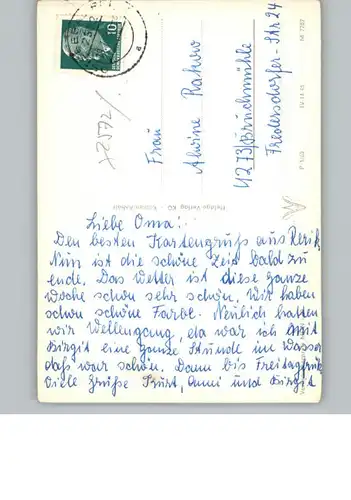 10
Frau
Alwine Rakow
1273 Bruchmühle
Fredersdorfer-Str 24
Liebe Oma!
Den besten Kartengruß aus Rerik
Nun ist die schöne Zeit bald zu
ende. Das Wetter ist diese ganze
Woche schon sehr schön. Wir haben
schon schöne Farbe. Neulich hatten
wir Wellengang, da war ich mit
Birgit eine ganze Stunde im Wasser
daß war schön. Dann bis Freitagfrüh
Viele Grüße Kurt, Anni und Birgit